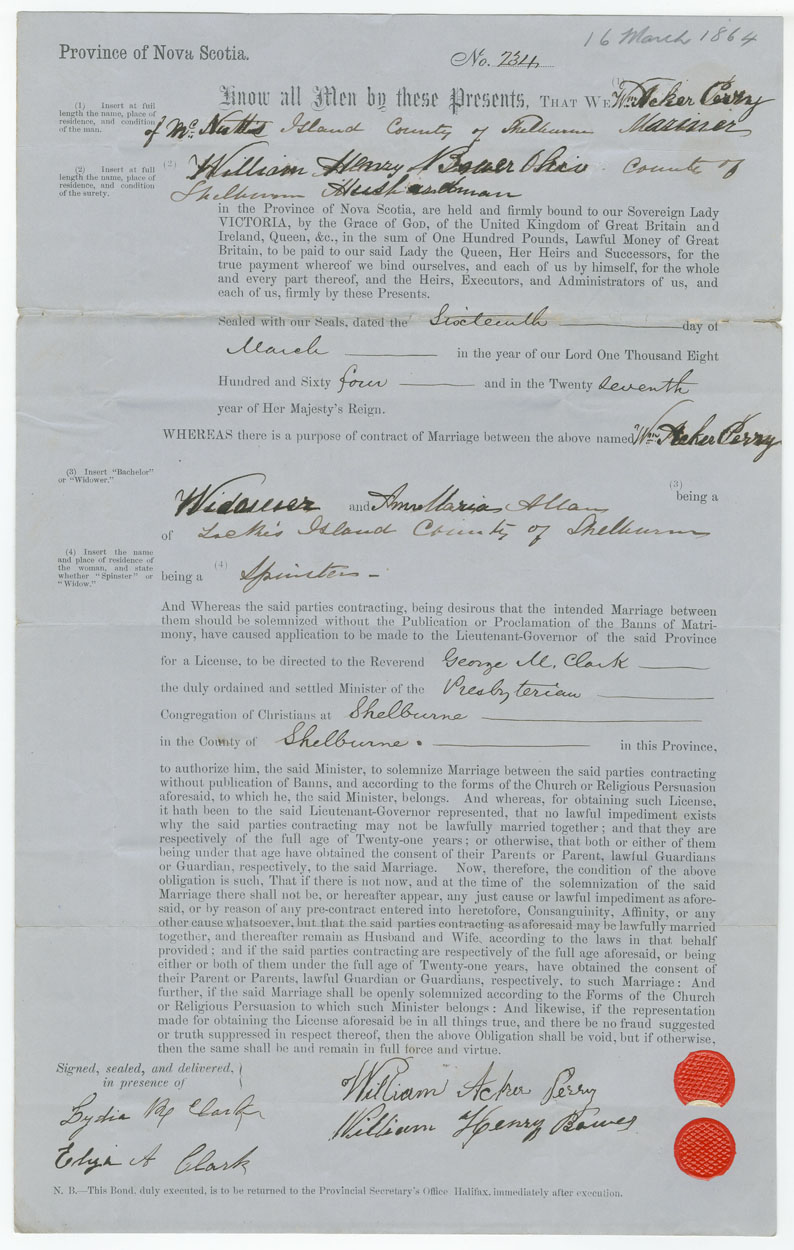 16 March 1864
Province of Nova Scotia.
No. 734
Know all Men by these Presents, THAT WE (1) Wm Acker Perry
(1) Insert at full
length the name, place of
residence, and condition
of the man.
of Mc Nutts Island County of Shelburne Mariner
(2) Insert at full
length the name, place of
residence, and condition
of the surety.
(2) William Henry Bower Ohio County of
Shelburn Husbandman
in the Province of Nova Scotia, are held and firmly bound to our Sovereign Lady
VICTORIA, by the Grace of GOD, of the United Kingdom of Great Britain and
Ireland, Queen, &c., in the sum of One Hundred Pounds, Lawful Money of Great
Britain, to be paid to our said Lady the Queen, Her Heirs and Successors, for the
true payment whereof we bind ourselves, and each of us by himself, for the whole
and every part thereof, and the Heirs, Executors, and Administrators of us, and
each of us, firmly by these Presents.
Sealed with our Seals, dated the Sixteenth day of
March in the year of our Lord One Thousand Eight
Hundred and Sixty four and in the Twenty seventh
year of Her Majesty's Reign.
WHEREAS there is a purpose of contract of Marriage between the above named Wm Acker Perry
(3) Insert "Bachelor"
or "Widower."
(3)
being a
Widower and Ann Maria Allan
of Locke's Island County of Shelburne
(4) Insert the name
and place of residence of
the woman, and state
whether "Spinster" or
"Widow."
being a (4) Spinster -
And Whereas the said parties contracting, being desirous that the intended Marriage between
them should be solemnized without the Publication or Proclamation of the Banns of Matri-
mony, have caused application to be made to the Lieutenant-Governor of the said Province
for a License, to be directed to the Reverend George M. Clark
the duly ordained and settled Minister of the Presbyterian
Congregation of Christians at Shelburne
in the County of Shelburne. in this Province,
to authorize him, the said Minister, to solemnize Marriage between the said parties contracting
without publication of Banns, and according to the forms of the Church or Religious Persuasion
aforesaid, to which he, the said Minister, belongs. And whereas, for obtaining such License,
it hath been to the said Lieutenant-Governor represented, that no lawful impediment exists
why the said parties contracting may not be lawfully married together; and that they are
respectively of the full age of Twenty-one years; or otherwise, that both or either of them
being under that age have obtained the consent of their Parents or Parent, lawful Guardians
or Guardian, respectively, to the said Marriage. Now, therefore, the condition of the above
obligation is such, That if there is not now, and at the time of the solemnization of the said
Marriage there shall not be, or hereafter appear, any just cause or lawful impediment as afore-
said, or by reason of any pre-contract entered into heretofore, Consanguinity, Affinity, or any
other cause whatsoever, but that the said parties contracting as aforesaid may be lawfully married
together, and thereafter remain as Husband and Wife, according to the laws in that behalf
provided; and if the said parties contracting are respectively of the full age aforesaid, or being
either or both of them under the full age of Twenty-one years, have obtained the consent of
their Parent or Parents, lawful Guardian or Guardians, respectively, to such Marriage: And
further, if the said Marriage shall be openly solemnized according to the Forms of the Church
or Religious Persuasion to which such Minister belongs: And likewise, if the representation
made for obtaining the License aforesaid be in all things true, and there be no fraud suggested
or truth suppressed in respect thereof, then the above Obligation shall be void, but if otherwise,
then the same shall be and remain in full force and virtue.
Signed, sealed, and delivered,
in presence of
William Acker Perry
Lydia R Clark
William Henry Bower
Eliza A Clark
N. B.—This Bond, duly executed, is to be returned to the Provincial Secretary's Office Halifax, immediately after execution.